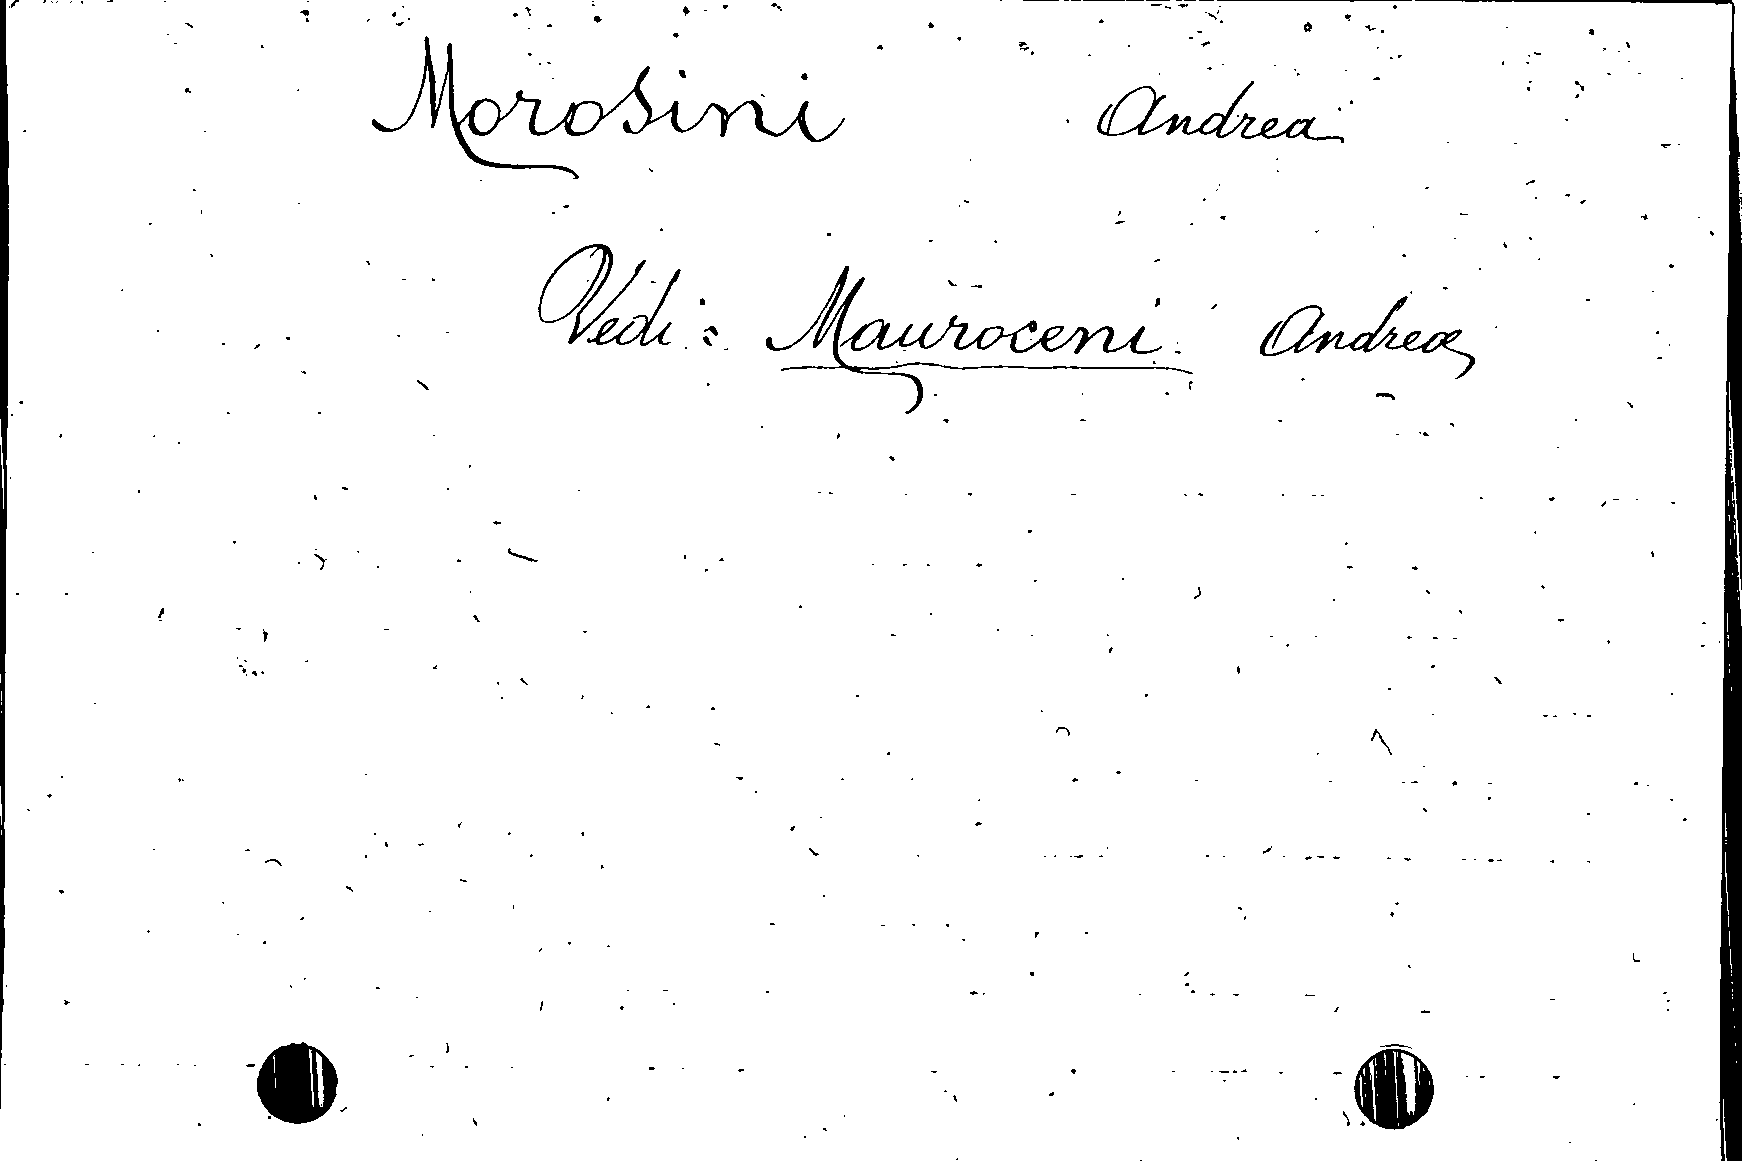 Morosini Andrea
Vedi: Mauroceni Andreæ